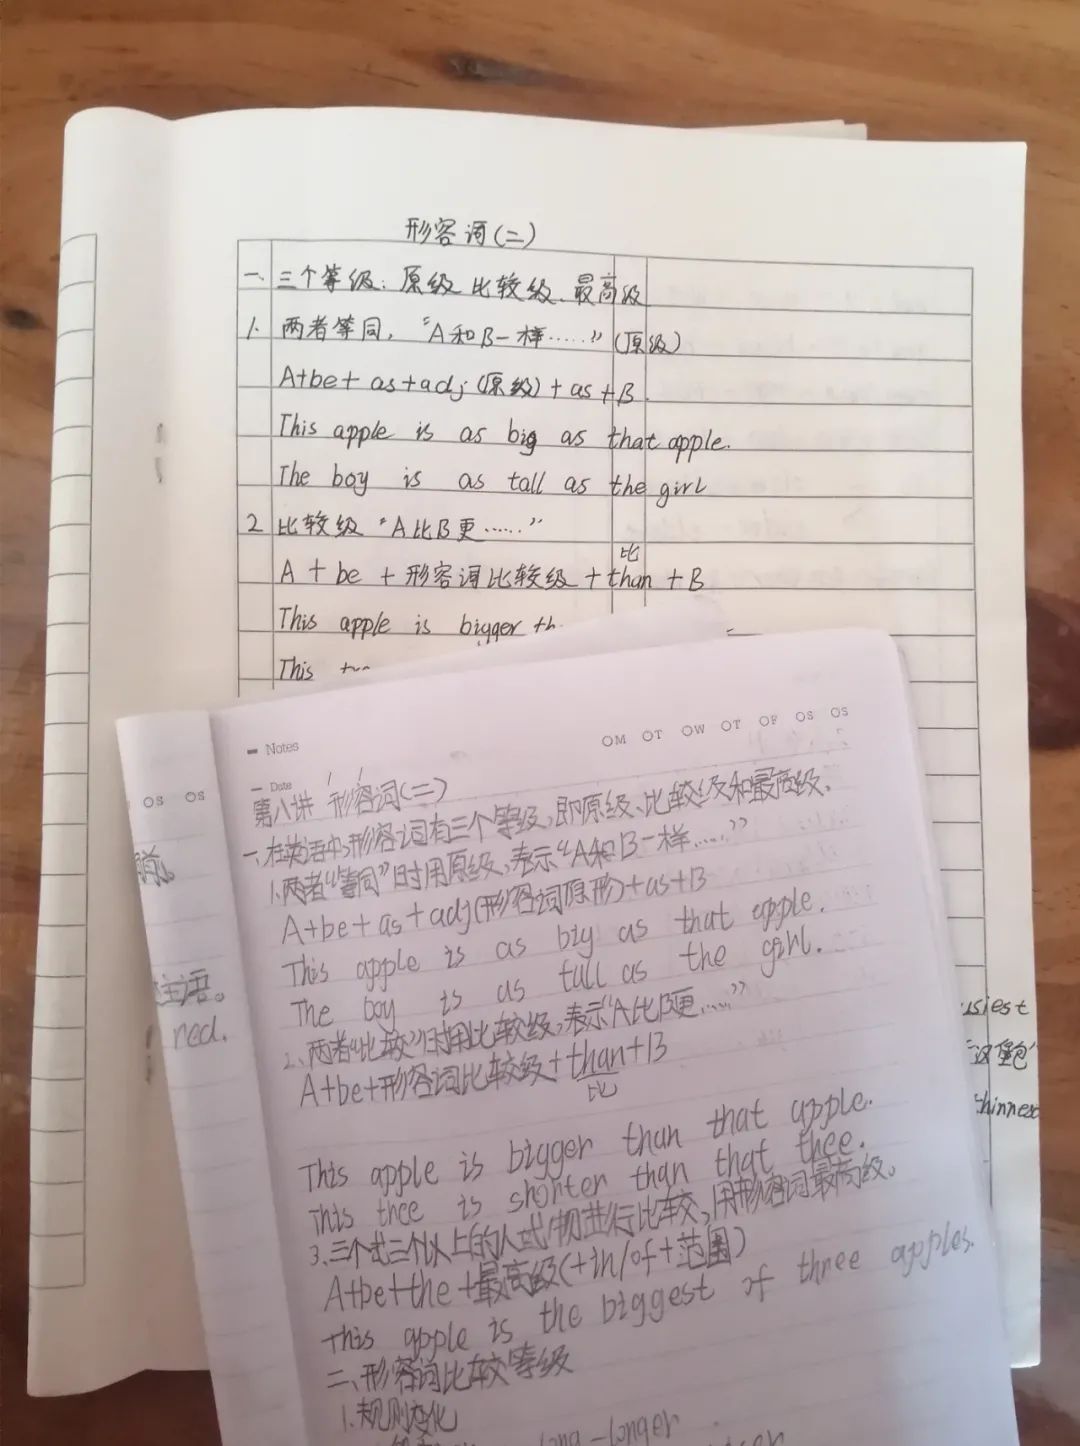 形容词(二)
一、三个等级：原级 比较级、最高级
1. 两者等同，“A和B一样……”(原级)
A+be+ as+adj(原级)+as+B.
This apple is as big as that apple.
The boy is as tall as the girl
2 比较级 “A比B更……”
比
A + be + 形容词比较级 + than + B
This apple is bigger th
This
Notes
OM OT OW OT OF OS OS
Date
OS OS
第八讲 形容词(二)
一、在英语中,形容词有三个等级,即原级、比较级和最高级。
1.两者“等同”时用原级,表示“A和B一样……”
A+be+as+adj(形容词原形)+as+B
This apple is as big as that apple.
The boy is as tall as the girl.
2、两者“比较”时用比较级,表示“A比B更……”
A+be+形容词比较级+than+B
比
This apple is bigger than that apple.
This thee is shorter than that thee.
3、三个或三个以上的人或物进行比较,用形容词最高级。
A+be+the+最高级(+in/of+范围)
This apple is the biggest of three apples.
二、形容词比较等级
1.规则变化
long-longer
主语。
red.
usiest
“汉堡包”
thinnest